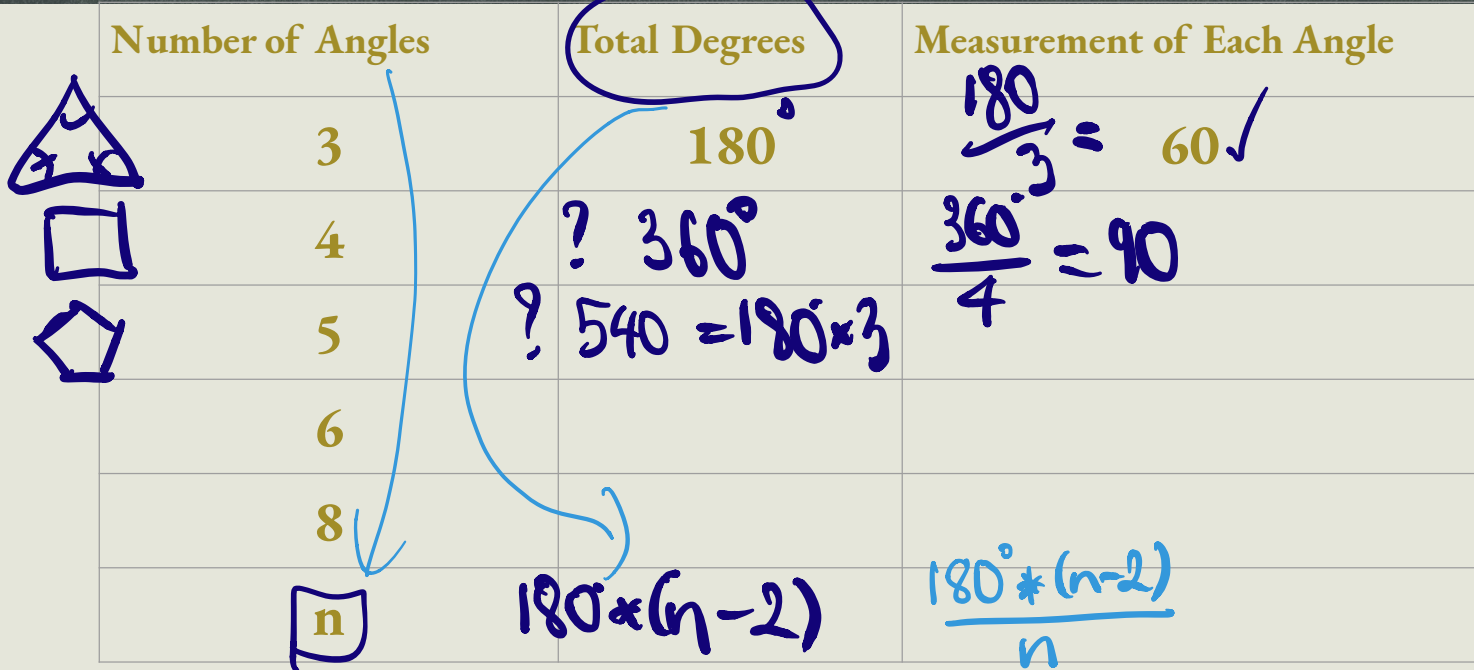 Number of Angles Total Degrees Measurement of Each Angle
3 180° 180/3 = 60 ✓
4 ? 360° 360°/4 = 90
5 ? 540 = 180° * 3
6
8
n 180° * (n - 2) 180° * (n - 2)/n